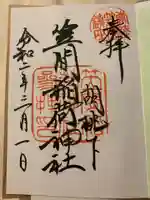 奉拝
胡桃下
笠間稲荷神社
令和二年三月一日